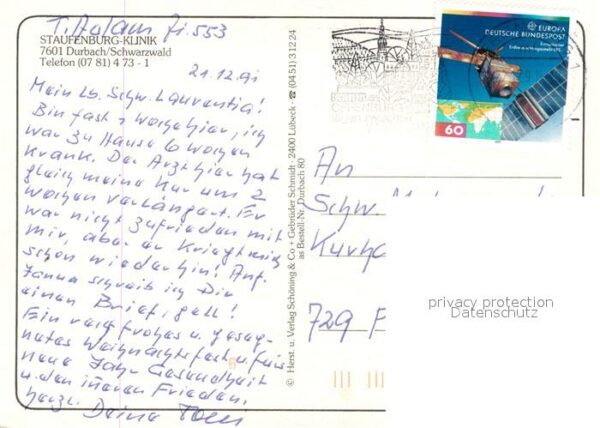 T. Adam Zi. 553
STAUFENBURG-KLINIK
7601 Durbach/Schwarzwald
Telefon (07 81) 4 73 - 1
21.12.91
Mein lb. Schw. Laurentia!
Bin fast 3 Wochen hier, ich
war zu Hause 6 Wochen
krank. Der Arzt hier hat
gleich meine Kur um 2
Wochen verlängert. Er
war nicht zufrieden mit
mir, aber er kriegt mich
schon wieder hin! Anf.
Januar schreib ich Dir
einen Brief, gell!
Ein recht frohes u. geseg-
netes Weihnachtsfest u. fürs
neue Jahr Gesundheit
u. den inneren Frieden.
herzl. Deine
© Herst. u. Verlag Schöning & Co + Gebrüder Schmidt · 2400 Lübeck · ☎ (04 51) 3 12 24
as Bestell-Nr. Durbach 80
EUROPA
DEUTSCHE BUNDESPOST
60
An
Schw.
Kurha
729 F
privacy protection
Datenschutz